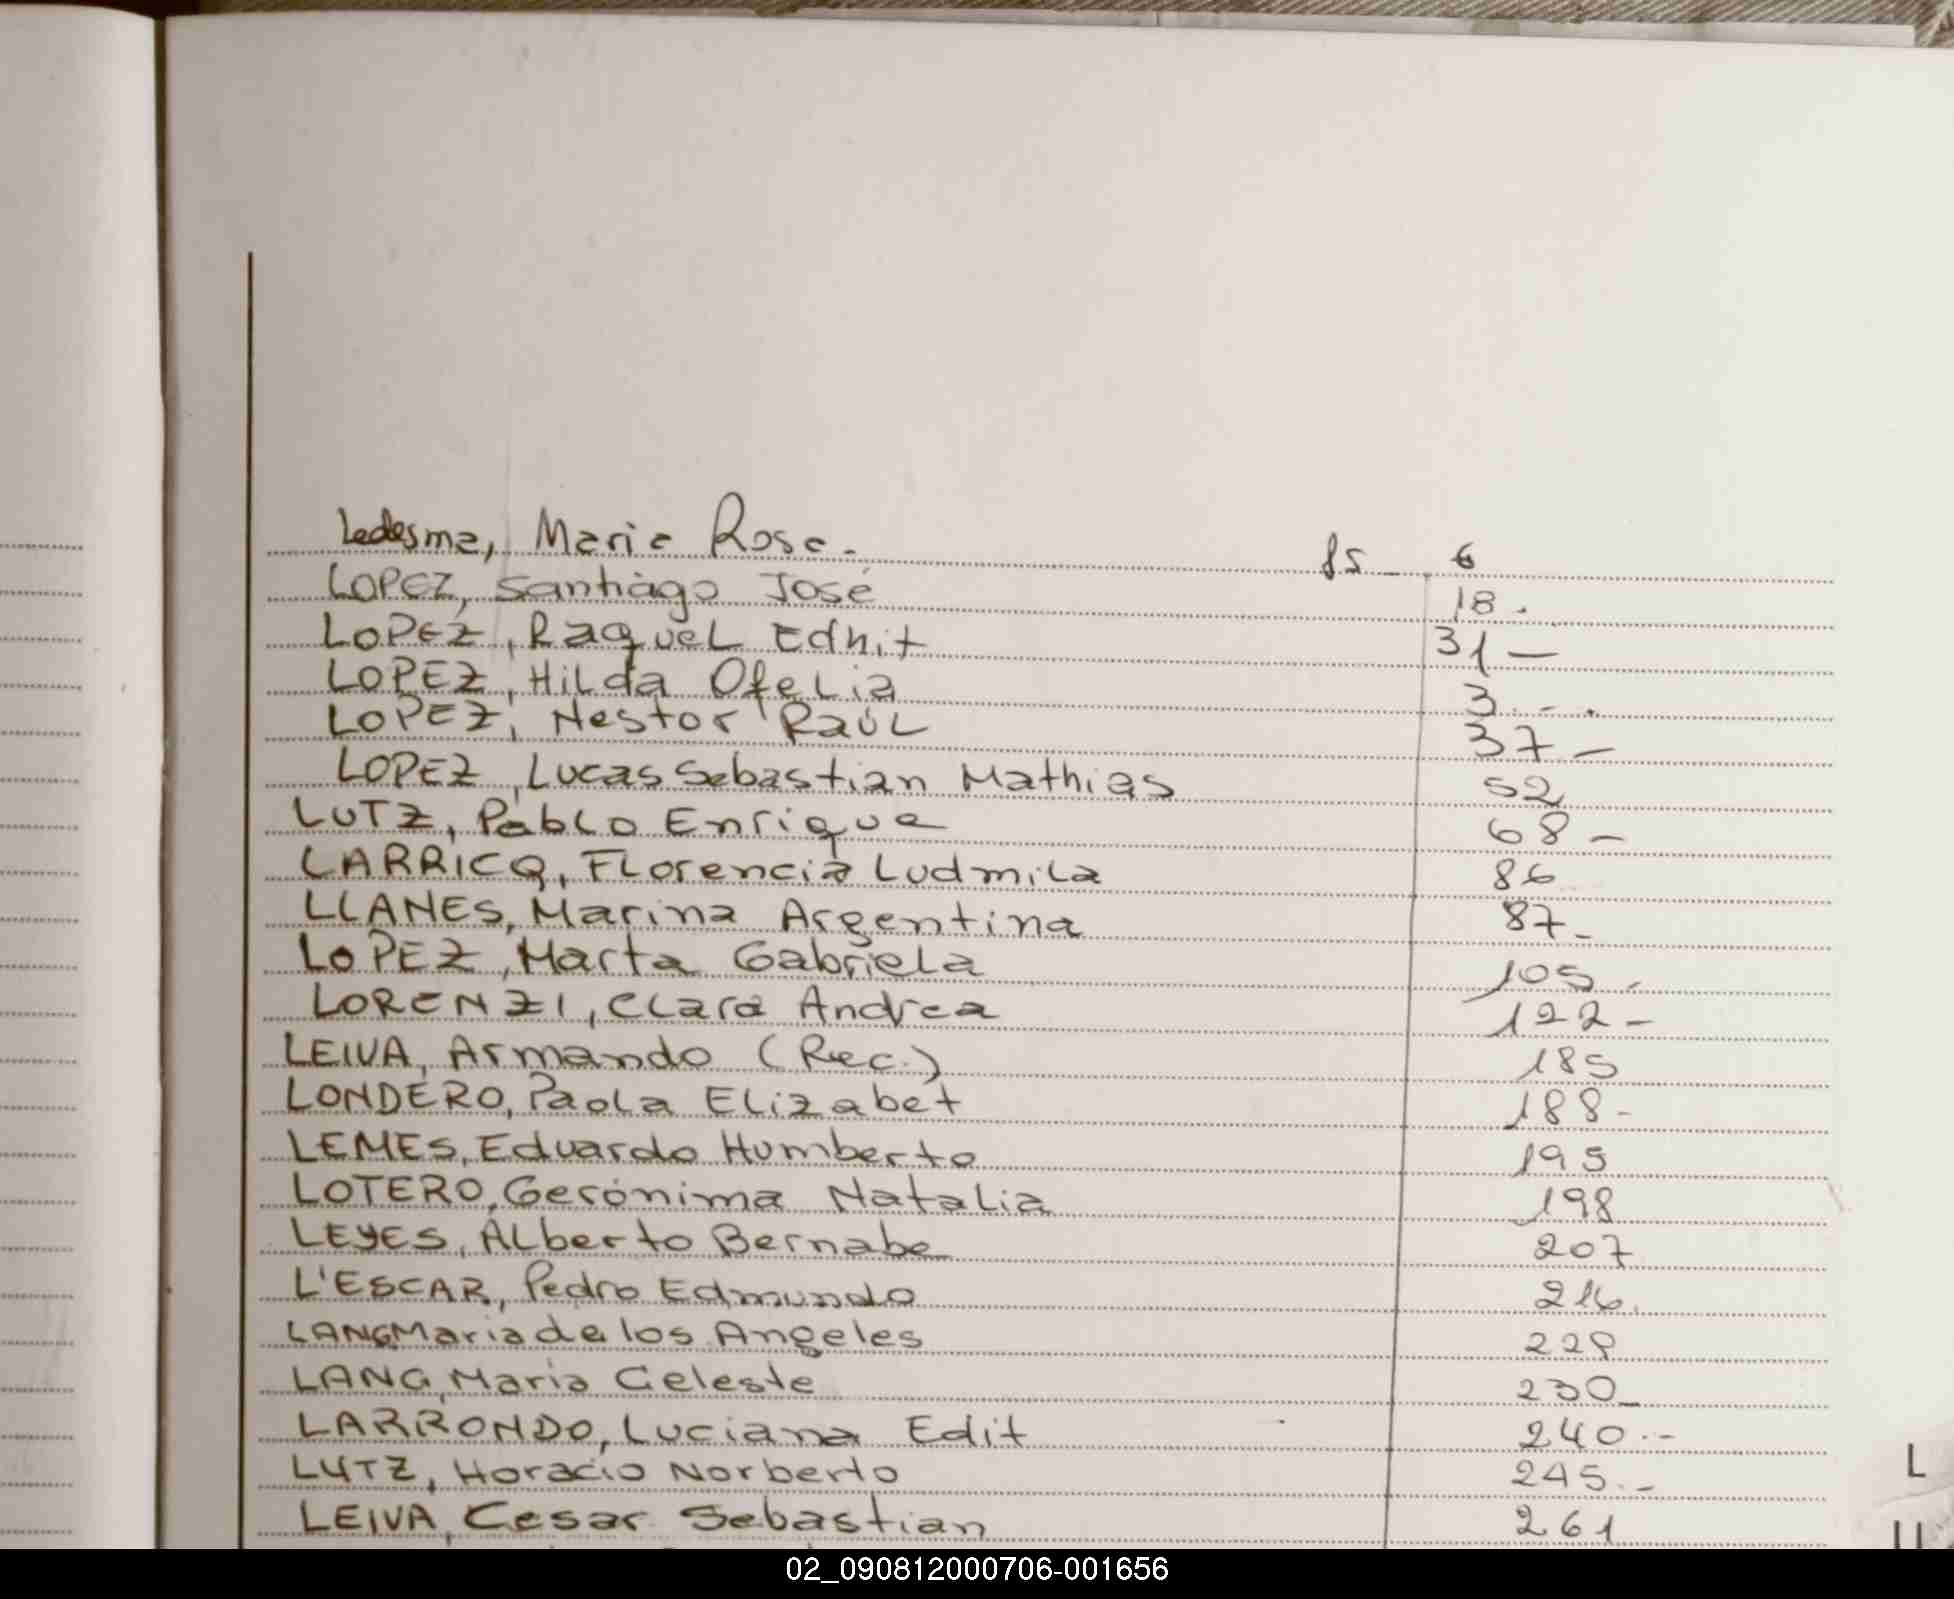 Ledesma, Maria Rosa. fs 6
LOPEZ, Santiago José 18.
LOPEZ, Raquel Edhit 31 —
LOPEZ, Hilda Ofelia 3 - .
LOPEZ, Nestor Raúl 37 —
LOPEZ, Lucas Sebastian Mathias 52
LUTZ, Pablo Enrique 68 —
LARRICQ, Florencia Ludmila 86
LLANES, Marina Argentina 87 -
LOPEZ, Marta Gabriela 105 -
LORENZI, Clara Andrea 122 -
LEIVA, Armando (Rec.) 185
LONDERO, Paola Elizabet 188 -
LEMES, Eduardo Humberto 195
LOTERO, Gerónima Natalia 198
LEYES, Alberto Bernabe 207
L'ESCAR, Pedro Edmundo 216.
LANG Maria de los Angeles 229
LANG, Maria Celeste 230
LARRONDO, Luciana Edit 240.-
LUTZ, Horacio Norberto 245.-
LEIVA, Cesar Sebastian 261
L
02_090812000706-001656